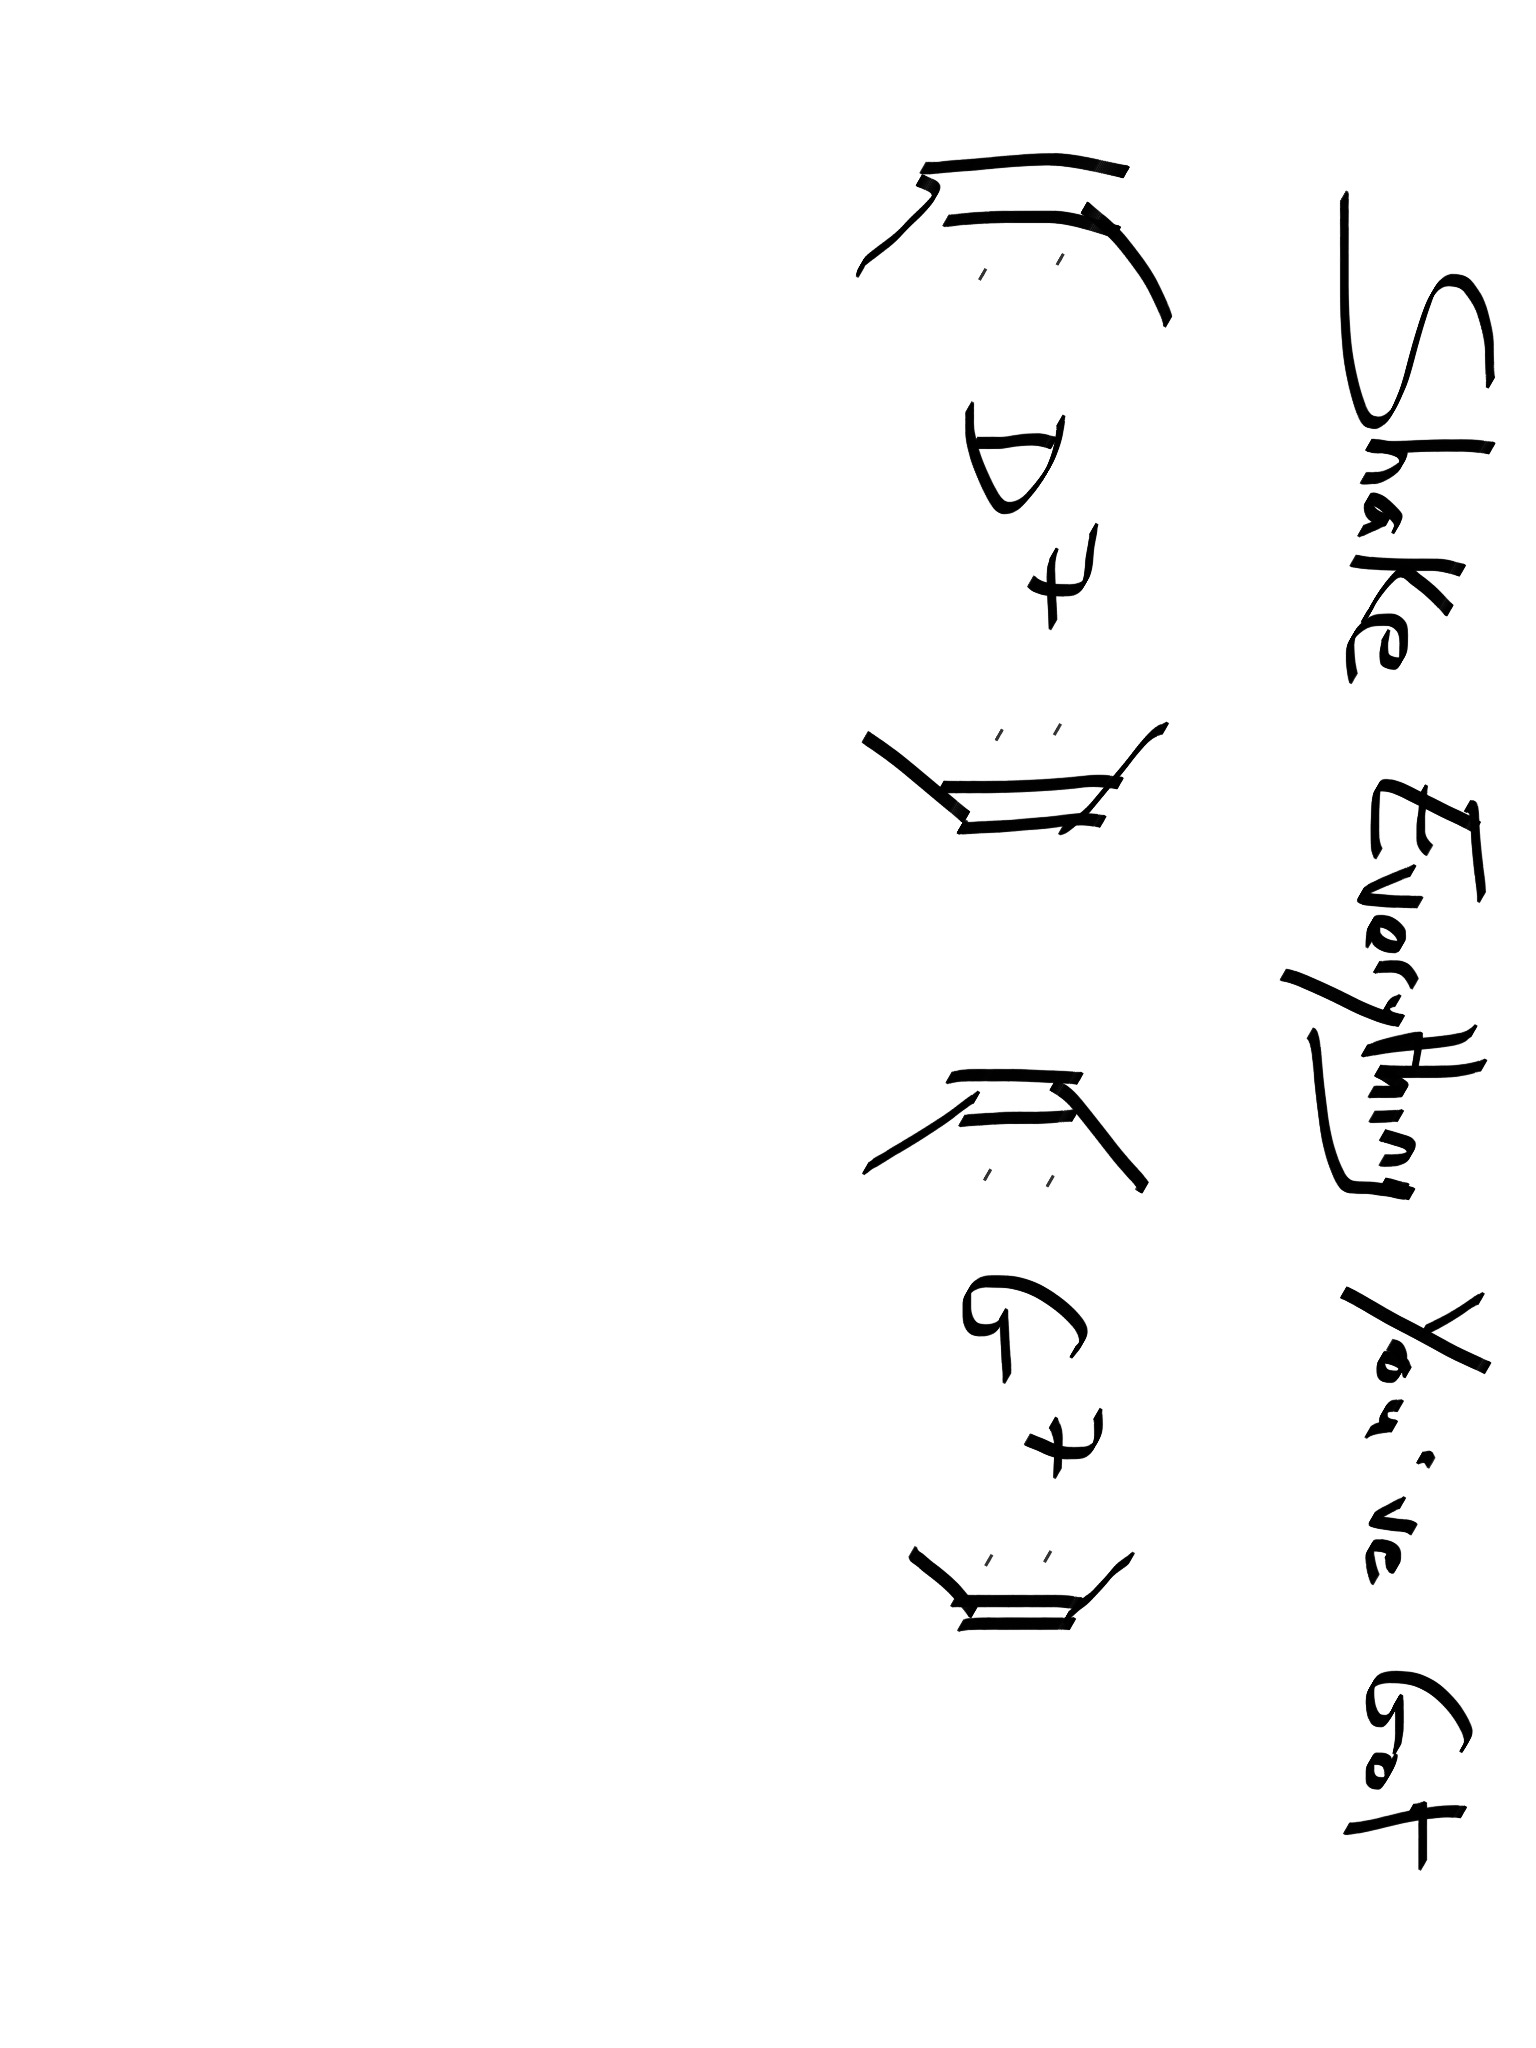 Shake Everything You've Got
D7 G7